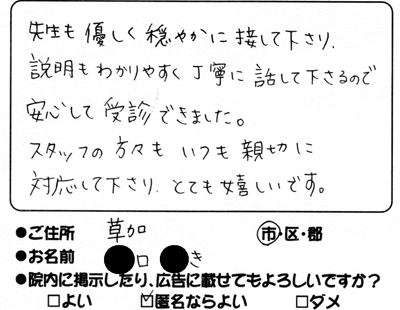 先生も優しく穏やかに接して下さり、
説明もわかりやすく丁寧に話して下さるので
安心して受診できました。
スタッフの方々もいつも親切に
対応して下さり、とても嬉しいです。
●ご住所 草加 市・区・郡
●お名前 ●口 ●き
●院内に掲示したり、広告に載せてもよろしいですか？
□よい ☑匿名ならよい □ダメ